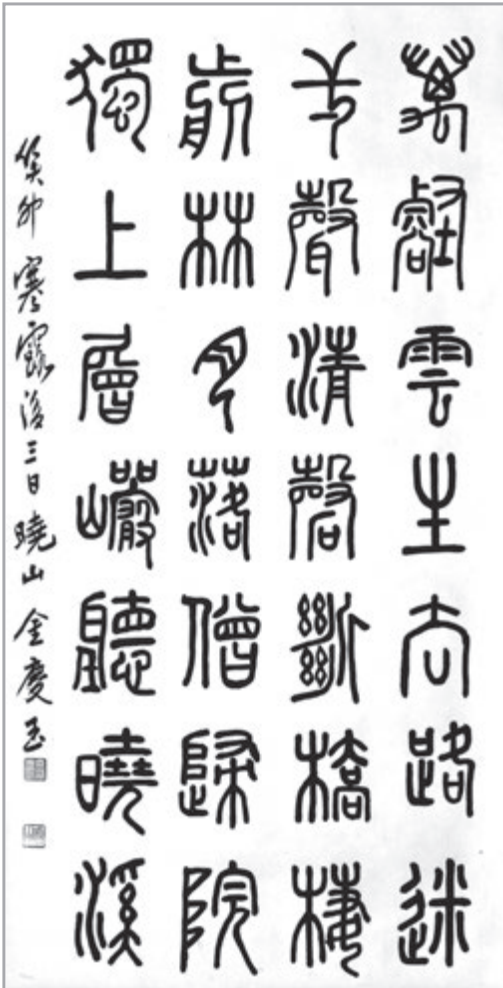 萬壑雲生去路迷
聲清磬斷橋棲
前林月落僧歸院
獨上層巖聽曉溪
癸卯寒露後三日 曉山 金慶玉